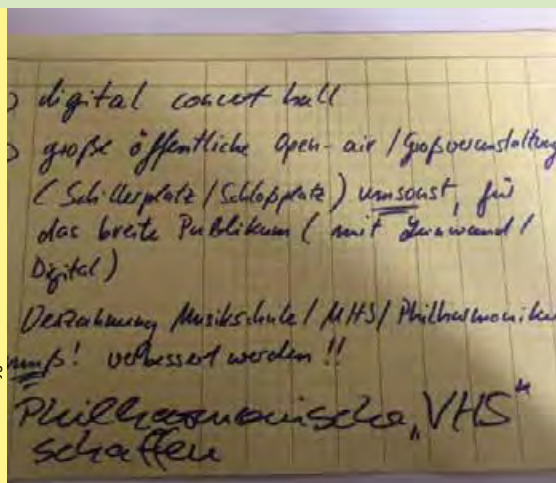 digital concert hall
große öffentliche Open-air / Großveranstaltung
( Schillerplatz / Schloßplatz ) umsonst, für
das breite Publikum ( mit Leinwand /
Digital )
Verzahnung Musikschule / MHS / Philharmoniker
muß! verbessert werden !!
Philharmonische „VHS"
schaffen